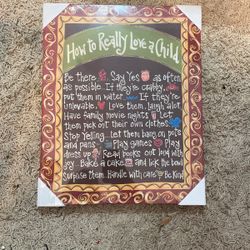 How to Really Love a Child
Be there. Say Yes as often
as possible. If they're crabby,
put them in water. If they're
unlovable, Love them. Laugh alot.
Have family movie nights. Let
them pick out their own clothes.
Stop Yelling. Let them bang on pots
and pans. Play games. Play
dress up. Read books out loud with
joy. Bake a cake and lick the bowl.
Surprise them. Handle with care. Be Kind.